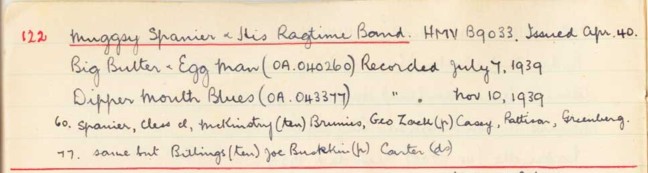 122 Muggsy Spanier & His Ragtime Band. HMV B9033. Issued Apr. 40.
Big Butter & Egg Man (OA.040260) Recorded July 7, 1939
Dipper Mouth Blues (OA.043377) " . Nov 10, 1939
60. Spanier, Cless cl, McKinstry (ten) Brunies, Geo Zack (p) Casey, Pattison, Greenberg.
77. same but Billings (ten) Joe Bushkin (p) Carter (ds)